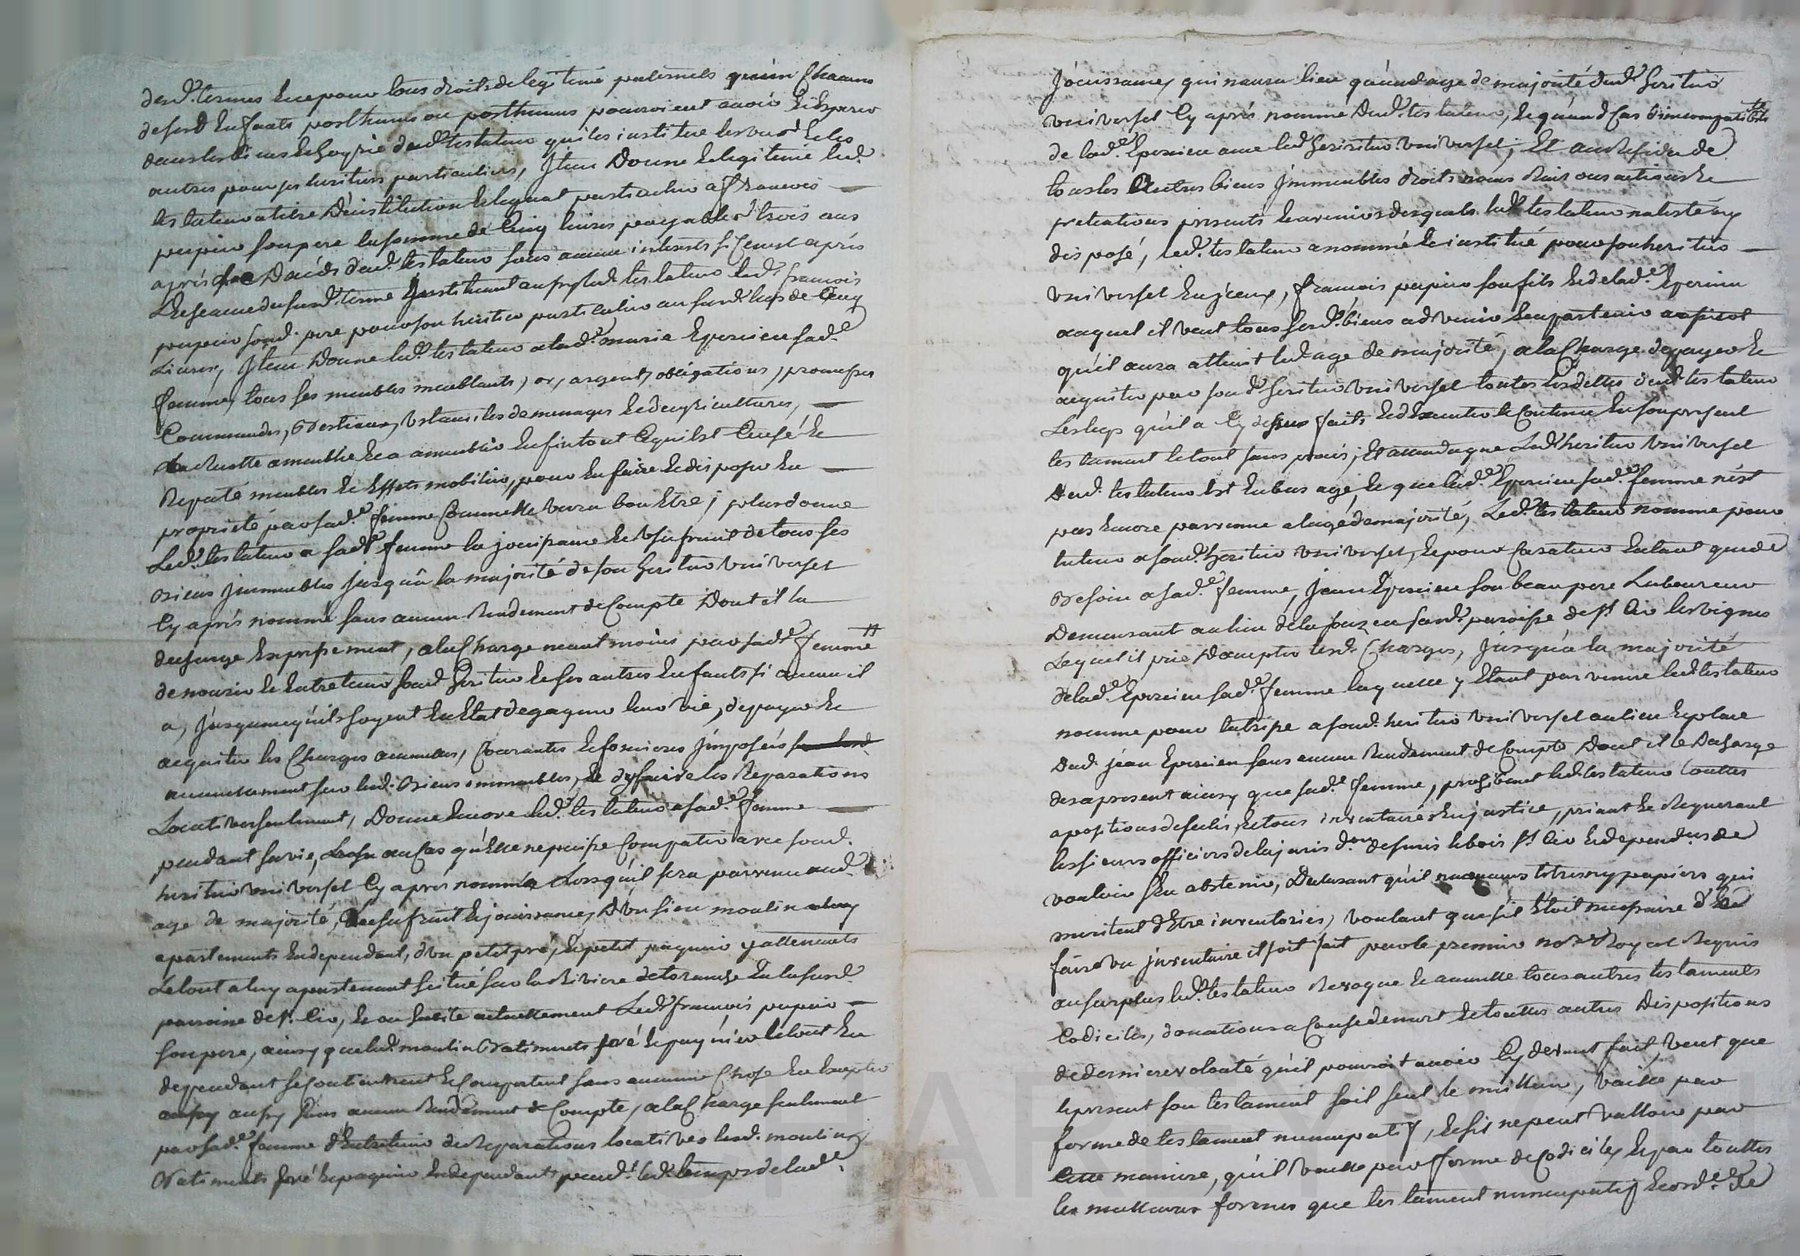 desd. termes Ence pour tous droits de legitime paternels qu'un Chacun
de sesd. Enfants posthumes ou posthumus pourroient avoir Et Esperer
dans les biens Et hoyrie dud. testateur qu'il les institue
autres pour ses heritiers particuliers, Item Donne Et legitime led.
testateur a titre D'institution Et legat particulier a francois
pepin son pere la somme de Cinq livres payable trois ans
après Le Décès dud. testateur sans aucun interets si Ce n'est après
L'Escance dusud. terme Instituant aussy led. testateur led. francois
pepin sond. pere pour son heritier particulier au susd. legs de Cinq
Livres, Item Donne led. testateur a lad.e marie Epercieu sad.e
femme, tous ses meubles meublants, or, argent, obligations, promesses
Commandes, Bestiaux, Ustensiles de menages Et de agricultures,
Cruette a meuble Et a ameublir Enfin tout Ce qui Est Censé Et
Reputé meubles Et Effets mobiliers, pour En faire Et disposer En
proprieté par sad.e femme Comme Elle verra bon Etre; plus donne
Led. testateur a sad.e femme la jouissance Et Usufruit de tous ses
Biens Immeubles jusqu'à la majorité de son heritier universel
Cy après nommé sans aucun Rendement de Compte Dont il la
decharge Expressement, a la Charge neantmoins par sad.e femme
de nourir Et Entretenir sond. heritier Et ses autres Enfants si aucun il
a, Jusqu'a ce qu'ils soyent En Etat de gagner leur vie, de payer Et
acquiter les Charges annuelles, Courantes Et foncieres Imposées
annuellement sur lesd. Biens immeubles, Et d'y faire les Reparations
Locatives seulement, Donne Encore led. testateur a sad.e femme
pendant sa vie, Et au Cas qu'Elle ne puisse Compatir avec sond.
heritier universel Cy après nommé Lorsqu'il sera parvenu aud.
age de majorité, L'usufruit Et jouissance, D'un sien moulin
apartements En dependant, d'un petit pré, Et petit paquier y attenants
Le tout a luy apartenant scitué sur la Riviere de toranche En la susd.
paroisse de st. Cir, Et ou habite actuellement Led. francois pepin
son pere, ainsy que led. moulin Batiments pré Et paquier Et tout En
dependant se Contiennent Et Comportent sans aucune Chose En Excepter
aussy sans aucun Rendement de Compte, a la Charge seulement
par sad.e femme d'Entretenir de Reparations locatives lesd. moulin,
Batiments pré Et paquier En dependants pend.t led. temps de lad.e
Jouissance, qui n'aura lieu qu'aud. age de majorité dud. heritier
universel Cy après nommé dud. testateur, Et quand Cas d'incompatibilité
de lad.e Epercieu avec led. heritier universel, Et au Residu de
tous les autres biens Immeubles droits noms Raisons actions Et
pretentions presents Et avenir desquels led. testateur n'a testé ny
disposé, led. testateur a nommé Et institué pour son heritier
universel En iceux, francois pepin son fils Et de lad.e Epercieu
auquel il veut tous sesd. biens advenir Et appartenir
qu'il aura atteint led. age de majorité, a la Charge de payer Et
acquiter par sond. heritier universel toutes les dettes dud. testateur
Les legs qu'il a Cy dessus faits Et d'Executer le Contenu En son present
testament Le tout sans procès; Et attendu que Led. heritier universel
dud. testateur Est En bas age, Et que lad.e Epercieu sad.e femme n'est
pas Encore parvenue a l'age de majorité, Led. testateur nomme pour
tuteur a sond. heritier universel, Et pour Curateur En tant que de
Besoin a sad.e femme, Jean Epercieu son beau pere Laboureur
Demeurant au lieu de la foüze en sad. paroisse de st. Cir les vignes
Lequel il prie D'accepter lesd. Charges, Jusqu'a la majorité
de lad.e Epercieu sad.e femme laquelle y Etant parvenue led. testateur
nomme pour tutrice a sond. heritier universel au lieu Et place
dud. jean Epercieu sans aucun Rendement de Compte Dont il le Decharge
des a present ainsy que sad.e femme, prohibant led. testateur toutes
apositions de scelés, Et tous inventaires En justice, priant Et Requerant
les sieurs officiers de la juris.don de st. Cir Et dependances de
vouloir s'En abstenir, Declarant qu'il n'a aucuns titres ny papiers qui
meritent d'Etre inventoriés, voulant que s'il Etoit necessaire d'En
faire un inventaire il soit fait par le premier no.re Royal Requis
au surplus led. testateur Revoque Et annulle tous autres testaments
Codiciles, donations a Cause de mort Et toutes autres Dispositions
de derniere volonté qu'il pourroit avoir Cy devant fait veut que
le present son testament soit seul Et meilleur, vaille par
forme de testament nuncupatif, Et s'il ne peut valloir par
Cette maniere, qu'il vaille par forme de Codicile, Et par touttes
les meilleures formes que testament nuncupatif